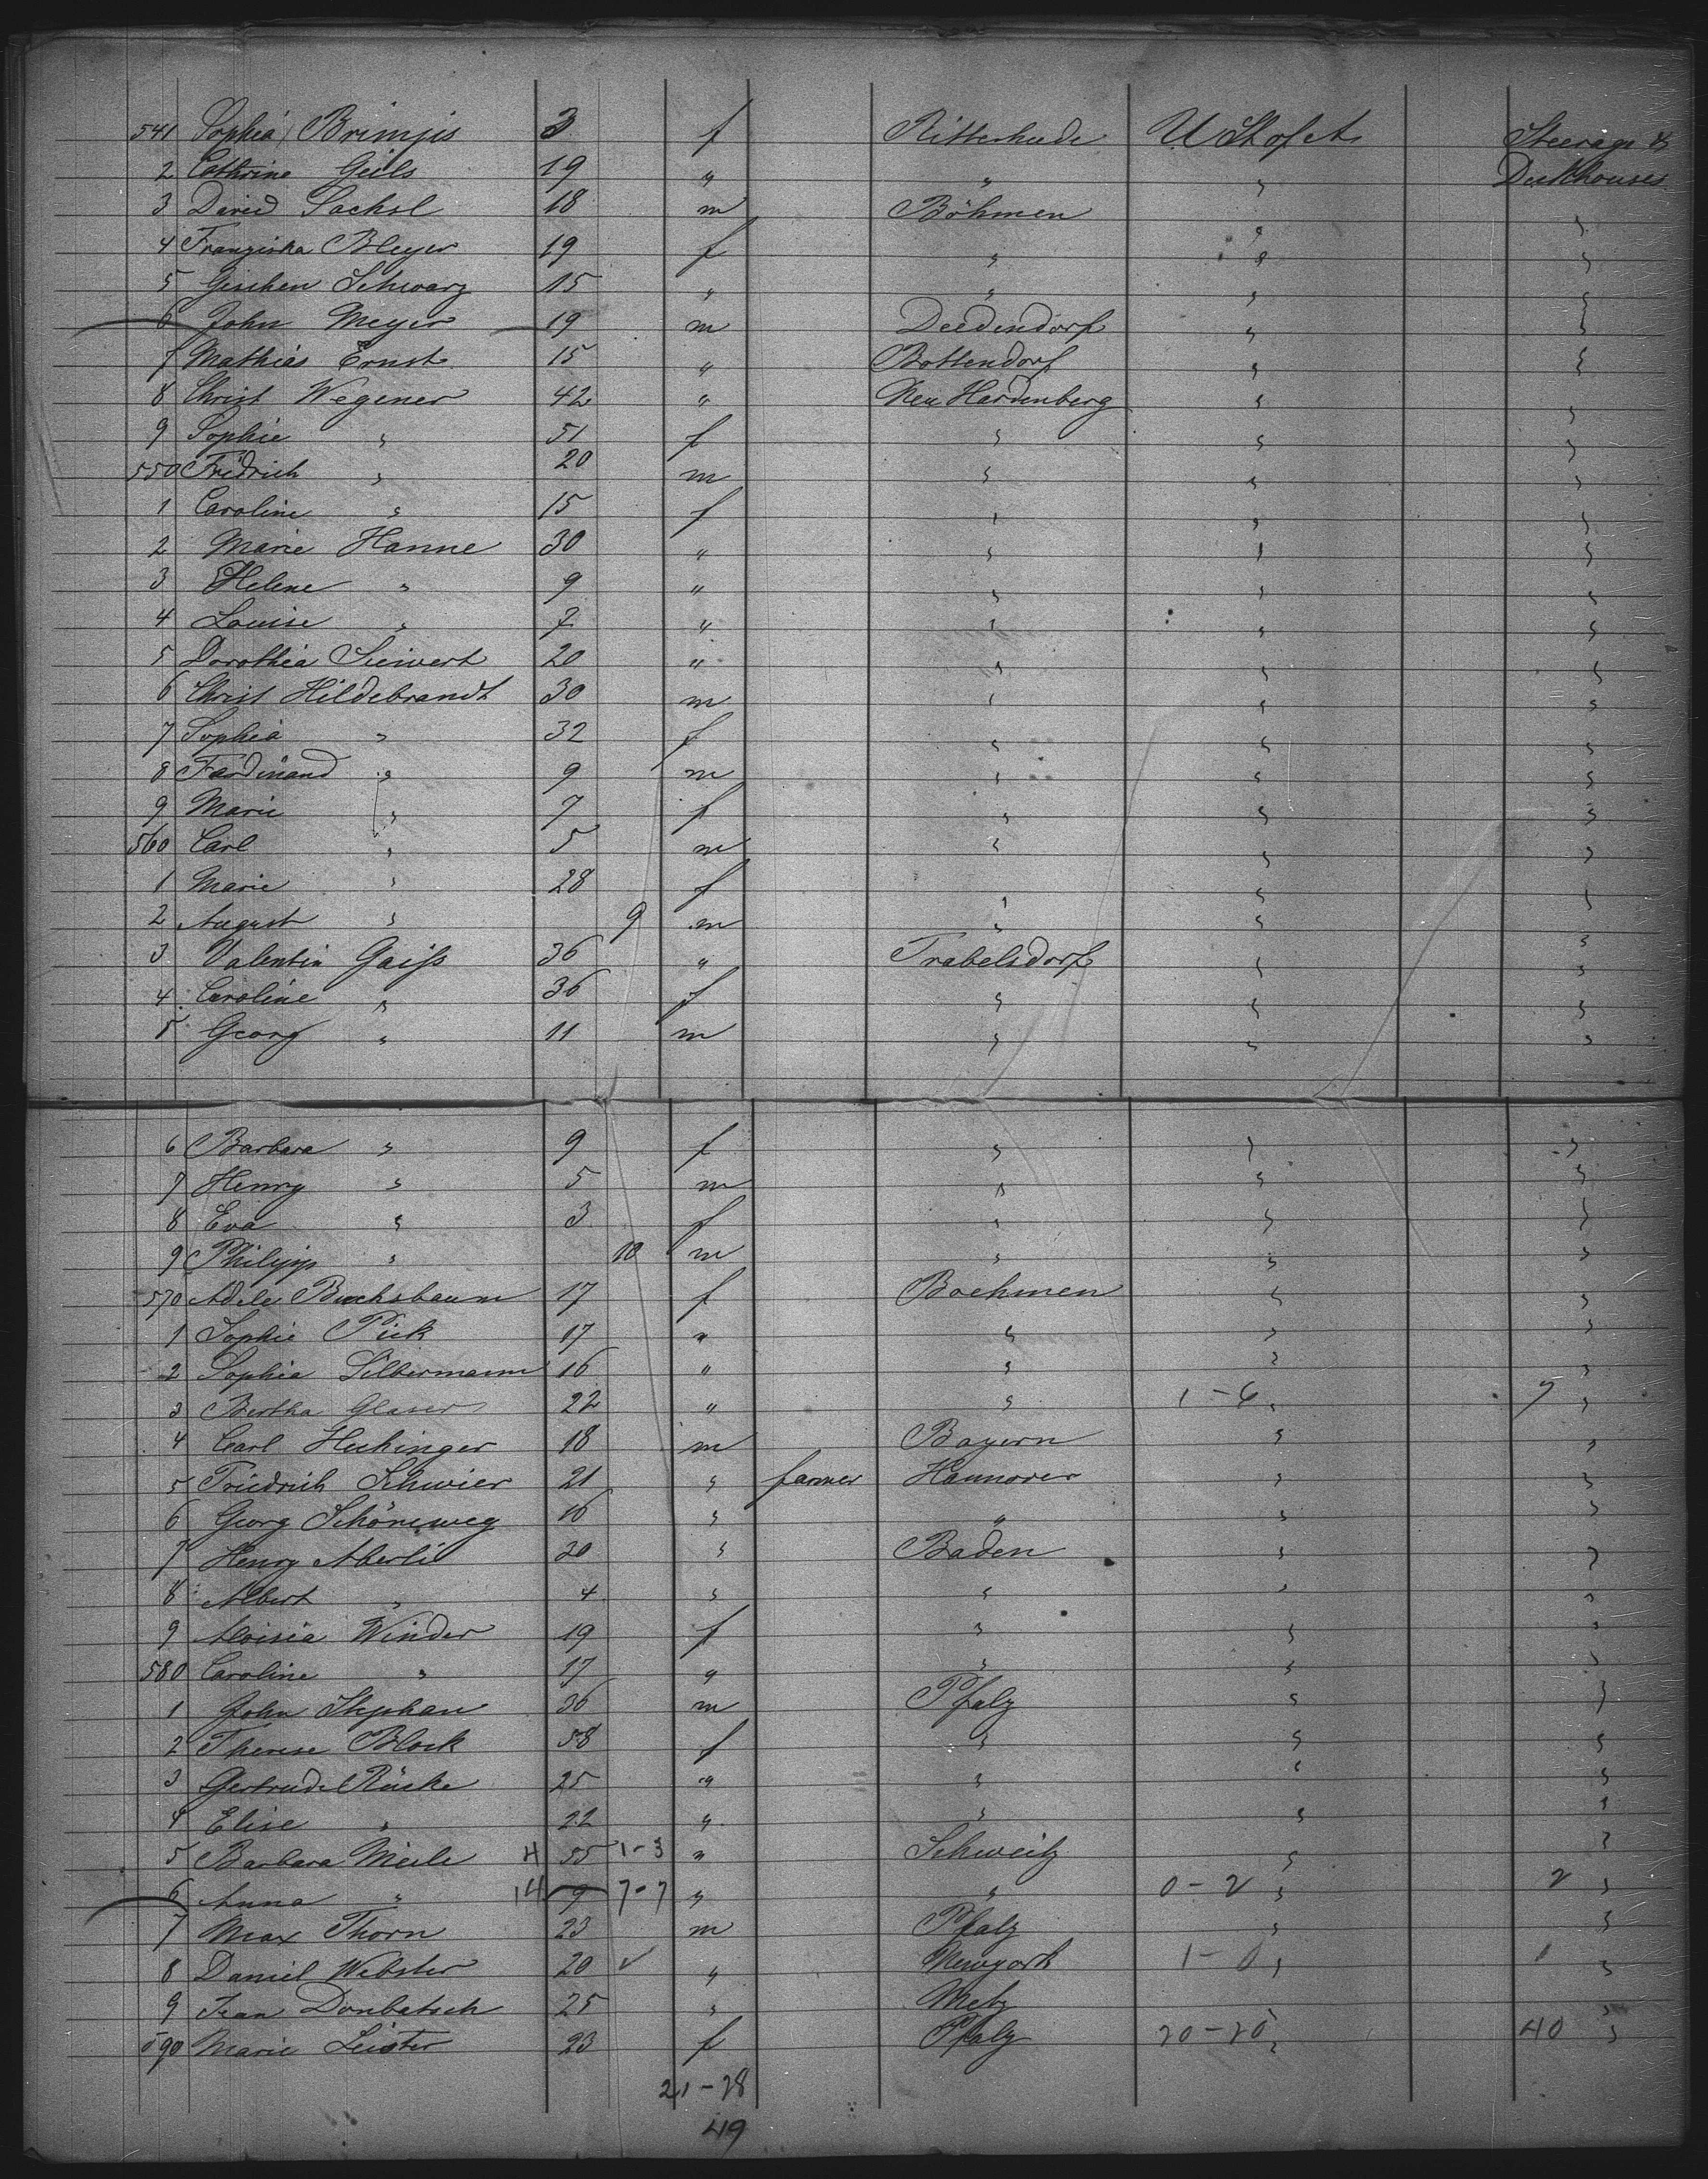 541 Sophia Brimjis 3 f Ritterhude U St of A Steerage &
2 Cathrine Geils 19 " " " Deckhouses
3 David Sachsl 18 m Böhmen " "
4 Franziska Bleyer 19 f " " "
5 Gischen Schwarz 15 " " " "
6 John Meyer 19 m Deedendorf " "
7 Mathias Ernst 15 " Bottendorf " "
8 Christ Wegener 42 " Neu Hardenberg " "
9 Sophie " 51 f " " "
550 Fridrich " 20 m " " "
1 Caroline " 15 f " " "
2 Marie Hanne 30 " " " "
3 Helene " 9 " " " "
4 Louise " 7 " " " "
5 Dorothea Siewert 20 " " " "
6 Christ Hildebrandt 30 m " " "
7 Sophia " 32 f " " "
8 Ferdinand " 9 m " " "
9 Marie " 7 f " " "
560 Carl " 5 m " " "
1 Marie " 28 f " " "
2 August " 9 m " " "
3 Valentin Gaiss 36 " Trabelsdorf " "
4 Caroline " 36 f " " "
5 Georg " 11 m " " "
6 Barbara " 9 f " " "
7 Henry " 5 m " " "
8 Eva " 3 f " " "
9 Philipp " 10 m " " "
570 Adele Buchsbaum 17 f Boehmen " "
1 Sophie Pick 17 " " " "
2 Sophia Silbermann 16 " " " "
3 Bertha Glaser 22 " " 1-6 " 7 "
4 Carl Hechinger 18 m Bayern " "
5 Friedrich Schwier 21 " farmer Hannover " "
6 Georg Schöneweg 16 " " " "
7 Henry Aberli 30 " Baden " "
8 Albert " 4 " " " "
9 Aloisia Winder 19 f " " "
580 Caroline " 17 " " " "
1 John Stephan 36 m Pfalz " "
2 Therese Block 58 f " " "
3 Gertrude Rüske 25 " " " "
4 Elise " 22 " " " "
5 Barbara Meile 4 55 1-3 " Schweitz " "
6 Anna " 14 9 7-7 " " 0-2 " 2 "
7 Max Thorn 23 m Pfalz " "
8 Daniel Webster 20 " Newyork 1-0 " 1 "
9 Jean Donbatsch 25 " Metz " "
590 Marie Leister 23 f Pfalz 20-20 " 40 "
21-28
49